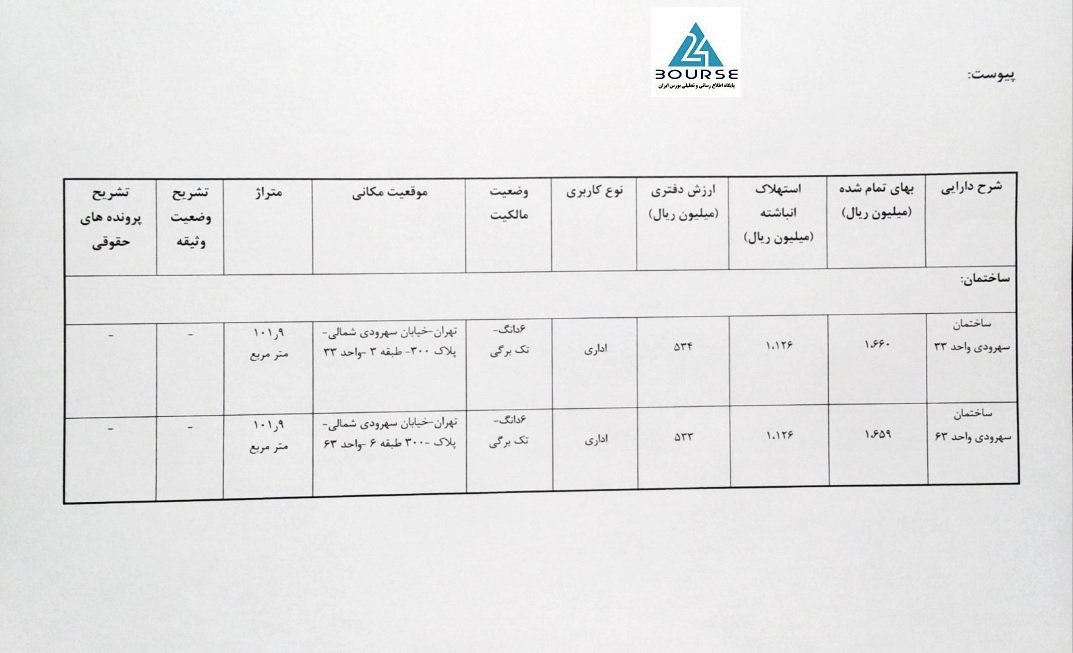 24
BOURSE
پایگاه اطلاع رسانی و تحلیلی بورس ایران
پیوست:
شرح دارایی
بهای تمام شده
(میلیون ریال)
استهلاک
انباشته
(میلیون ریال)
ارزش دفتری
(میلیون ریال)
نوع کاربری
وضعیت
مالکیت
موقعیت مکانی
متراژ
تشریح
وضعیت
وثیقه
تشریح
پرونده های
حقوقی
ساختمان:
ساختمان
سهرودی واحد ۳۳
۱.۶۶۰
۱.۱۲۶
۵۳۴
اداری
۶دانگ-
تک برگی
تهران-خیابان سهرودی شمالی-
پلاک ۳۰۰- طبقه ۳ -واحد ۳۳
۱۰۱٫۹
متر مربع
-
-
ساختمان
سهرودی واحد ۶۳
۱.۶۵۹
۱.۱۲۶
۵۳۳
اداری
۶دانگ-
تک برگی
تهران-خیابان سهرودی شمالی-
پلاک -۳۰۰ طبقه ۶ -واحد ۶۳
۱۰۱٫۹
متر مربع
-
-